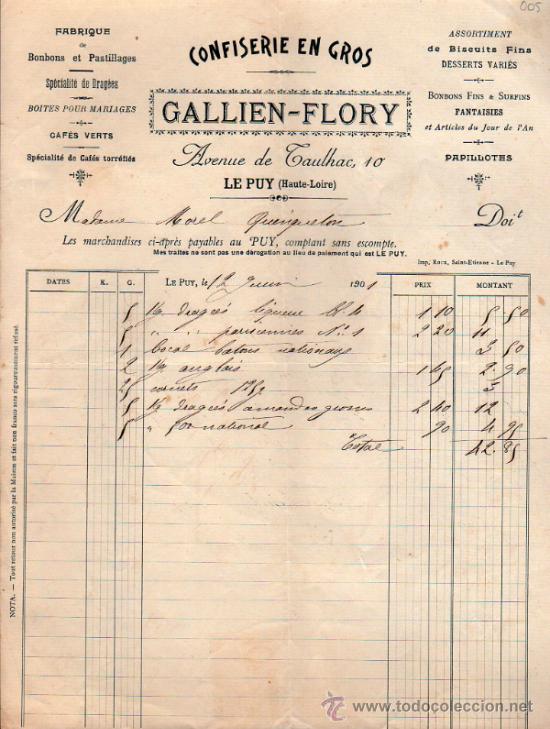 005
FABRIQUE
de
Bonbons et Pastillages
Spécialité de Dragées
BOITES POUR MARIAGES
CAFÉS VERTS
Spécialité de Cafés torréfiés
CONFISERIE EN GROS
GALLIEN-FLORY
Avenue de Taulhac, 10
LE PUY (Haute-Loire)
ASSORTIMENT
de Biscuits Fins
DESSERTS VARIÉS
BONBONS FINS & SURFINS
FANTAISIES
et Articles du Jour de l'An
PAPILLOTES
Madame Morel Doit
Les marchandises ci-après payables au PUY, comptant sans escompte.
Mes traites ne sont pas une dérogation au lieu de paiement qui est LE PUY.
Imp. Roux, Saint-Etienne - Le Puy
DATES K. G. LE PUY, le 12 1901 PRIX MONTANT
5 dragées liqueur 1 10 5 50
5 " " parisiennes No 1 2 20 11
1 bocal batons 3 50
2 anglais 1 45 2 90
25 cornets 3
5 dragées amandes 2 40 12
5 " national 90 4 95
Total 42 85
NOTA. — Tout retour non autorisé par la Maison et fait non franco sera rigoureusement refusé.
todocoleccion
www.todocoleccion.net